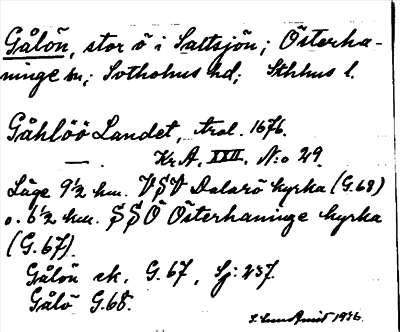 Gålön, stor ö i Saltsjön; Österha-
ninge sn; Sotholms hd; Sthlms l.
Gåhlöö Landet, tral. 1676.
— . Kr A, XXII, N:o 29.
Läge 9½ km. VSV Dalarö kyrka (G.68)
o. 6½ km. SSÖ Österhaninge kyrka
(G.67).
Gålön ek. G.67, Sj: 237.
Gålö G.68.
1936